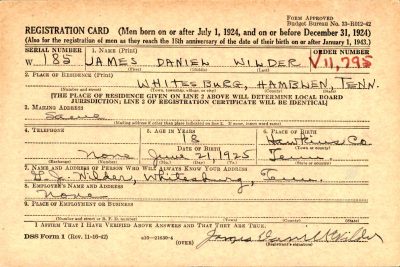 FORM APPROVED
Budget Bureau No. 33-R012-42
REGISTRATION CARD—(Men born on or after July 1, 1924, and on or before December 31, 1924)
(Also for the registration of men as they reach the 18th anniversary of the date of their birth on or after January 1, 1943.)
SERIAL NUMBER 1. NAME (Print) ORDER NUMBER
W 185 JAMES DANIEL WILDER V11,795
2. PLACE OF RESIDENCE (Print)
WHITESBURG, HAMBLEN, TENN.
(Number and street) (Town, township, village, or city) (County) (State)
[THE PLACE OF RESIDENCE GIVEN ON LINE 2 ABOVE WILL DETERMINE LOCAL BOARD
JURISDICTION; LINE 2 OF REGISTRATION CERTIFICATE WILL BE IDENTICAL]
3. MAILING ADDRESS
Same
(Mailing address if other than place indicated on line 2. If same, insert word same)
4. TELEPHONE 5. AGE IN YEARS 6. PLACE OF BIRTH
18 Hawkins Co.
DATE OF BIRTH (Town or county)
None June 21, 1925 Tenn.
(Exchange) (Number) (Mo.) (Day) (Yr.) (State or country)
7. NAME AND ADDRESS OF PERSON WHO WILL ALWAYS KNOW YOUR ADDRESS
Wilder, Whitesburg, Tenn.
8. EMPLOYER'S NAME AND ADDRESS
None
9. PLACE OF EMPLOYMENT OR BUSINESS
(Number and street or R. F. D. number) (Town) (County) (State)
I AFFIRM THAT I HAVE VERIFIED ABOVE ANSWERS AND THAT THEY ARE TRUE.
DSS Form 1 (Rev. 11-16-42) (OVER) James Daniel Wilder
(Registrant's signature)